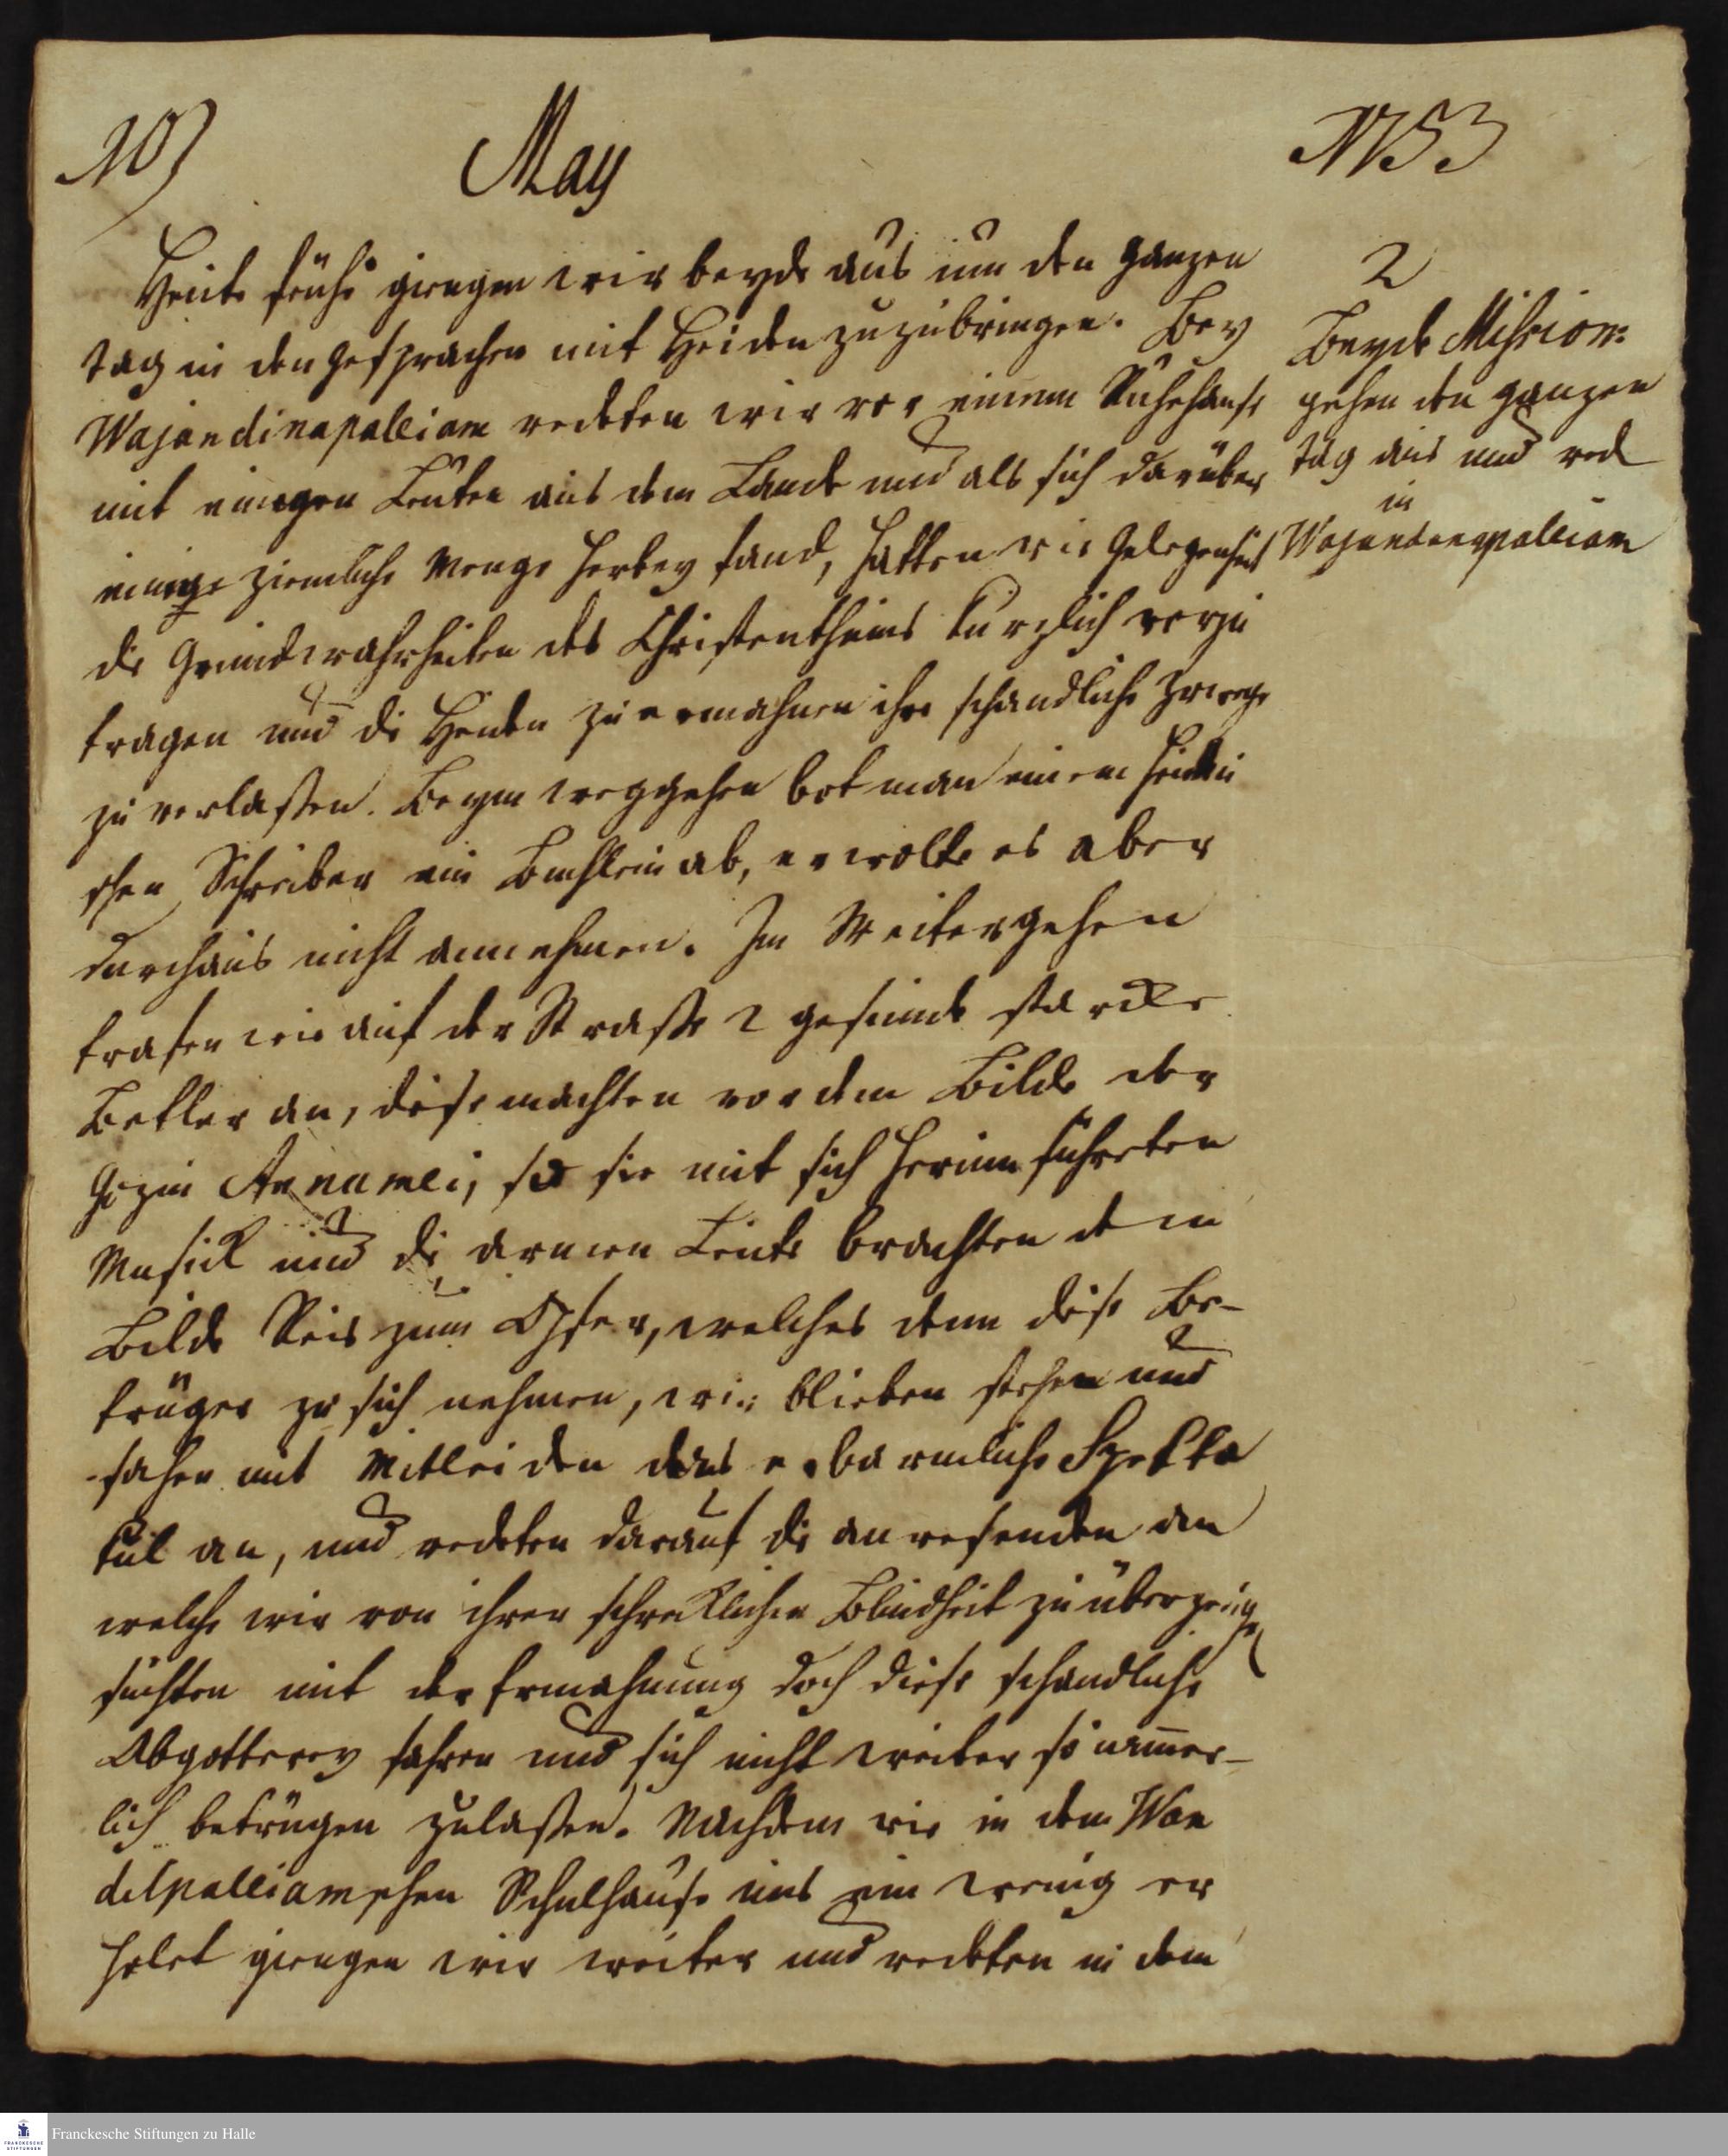 10)
May
1753
Heute frühe giengen wir beyde aus um den ganzen
Tag in den gesprachen mit Heiden zuzubringen. Bey
Wajandinapalliam redeten wir vor einem Ruhehause
mit einigen Leuten aus dem Lande und als sich darüber
einige ziemliche Menge herbey fand, hatten wir Gelegenheit
die Grundwahrheiten des Christenthums kürzlich vorzu
tragen und die Heiden zu ermahnen ihre schandliche
zu verlaßen. Beym weggehen bot man einem heidni
schen Schreiber ein Buchlein ab, er wolte es aber
durchaus nicht annehmen. Im Weitergehen
trafen wir auf der Straße 2 gesunde starcke
Betler an, diese machten vor dem Bilde der
Gözin Annamei, so sie mit sich herum führeten
Musick und die armen Leute brachten dem
Bilde Reis zum Opfer, welches denn diese Be-
trüger zu sich nehmen, wir blieben stehen und
sahen mit Mitleiden das erbarmliche Spekta
kul an, und redeten darauf die anwesenden an
welche wir von ihrer schreklichen Blindheit zu überzeugen
suchten mit der Ermahnung doch diese schandliche
Abgotterey fahren und sich nicht weiter so jammer-
lich betrügen zulaßen. Nachdem wir in dem Wan
delpalliamschen Schulhause uns ein wenig er
holet giengen wir weiter und redeten in dem
2
Beyde Mission:
gehen den ganzen
Tag aus und red
in
Wajandenapalliam
Franckesche Stiftungen zu Halle
FRANCKESCHE
STIFTUNGEN